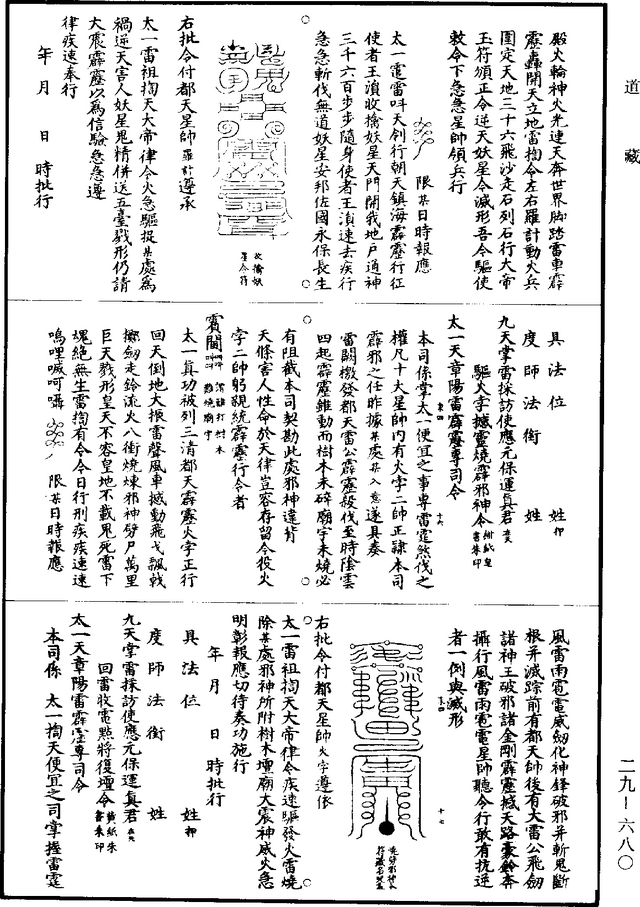 道藏
殿火輪神火光連天奔世界脚踏雷車霹
靂轟開天立地雷掏令左右羅計動火兵
圍定天地三十六飛沙走石列石行大帝
玉符頒正令逆天妖星令滅形吾令驅使
敕令下急急星師領兵行
限某日時報應
太一霆雷呌天刽行朝天鎮海霹靂行征
使者王湏收擒妖星天門開我地戶通神
三千六百步步隨身使者王湏速去疾行
急急斬伐無道妖星安邦佐國永保長生
收擒妖
星令符
右批令付都天星帥羅計遵承
太一雷祖掏天大帝律令火急驅捉某處爲
禍逆天害人妖星鬼精併送五臺戮形仍請
大震霹靂以爲信驗急急遵
律疾速奉行
年月日時批行
具法位姓押
度師法衘姓
九天掌雷採訪使應元保運真君
驅火字撼靈燒霹邪神令
太一天章陽雷霹靂專司令
本司係掌太一便宜之事專雷霆煞伐之
權凡十大星帥內有火字二帥正隷本司
霹邪之任昨據某處某入意遂具奏
雷闕檄發都天雷公霹靂殺伐至時陰雲
四起霹靂雖動而樹木未碎廟宇未燒必
有阻截本司契勘此處邪神違背
天條害人性命於天律豈容存留令役火
字二帥躬親統霹靂行令者
太一真功被列三清都天霹靂火字正行
回天倒地大振雷聲風車撼動飛戈飄戟
擲劒走鈴流火八衝燒煉邪神劈尸萬里
巨天戮形皇天不容皇地不載鬼死雷下
魂絕無生雷掏有令令日行刑疾疾速速
嗚哩㖑呵囁限某日時報應
風雷雨雹電威劒化神鋒破邪并斬鬼斷
根并滅踪前有都天帥後有大雷公飛劒
諸神王破邪諸金剛霹靂撼天路豪鈴奔
攝行風雷雨雹電星帥聽令行敢有抗逆
者一例與滅形
十七
右批令付都天星帥火字遵依
太一雷祖掏天大帝律令疾速驅發火雷燒
除某處邪神所附樹木壇廟大震神威火急
明彰報應切待奏功施行
年月日時批行
具法位姓押
度師法衘姓
九天掌雷採訪使應元保運真君
回雷收電點將復壇令黃紙朱書朱印
太一天章陽雷霹靂專司令
本司係太一掏天便宜之司掌握雷霆
二九—六八〇